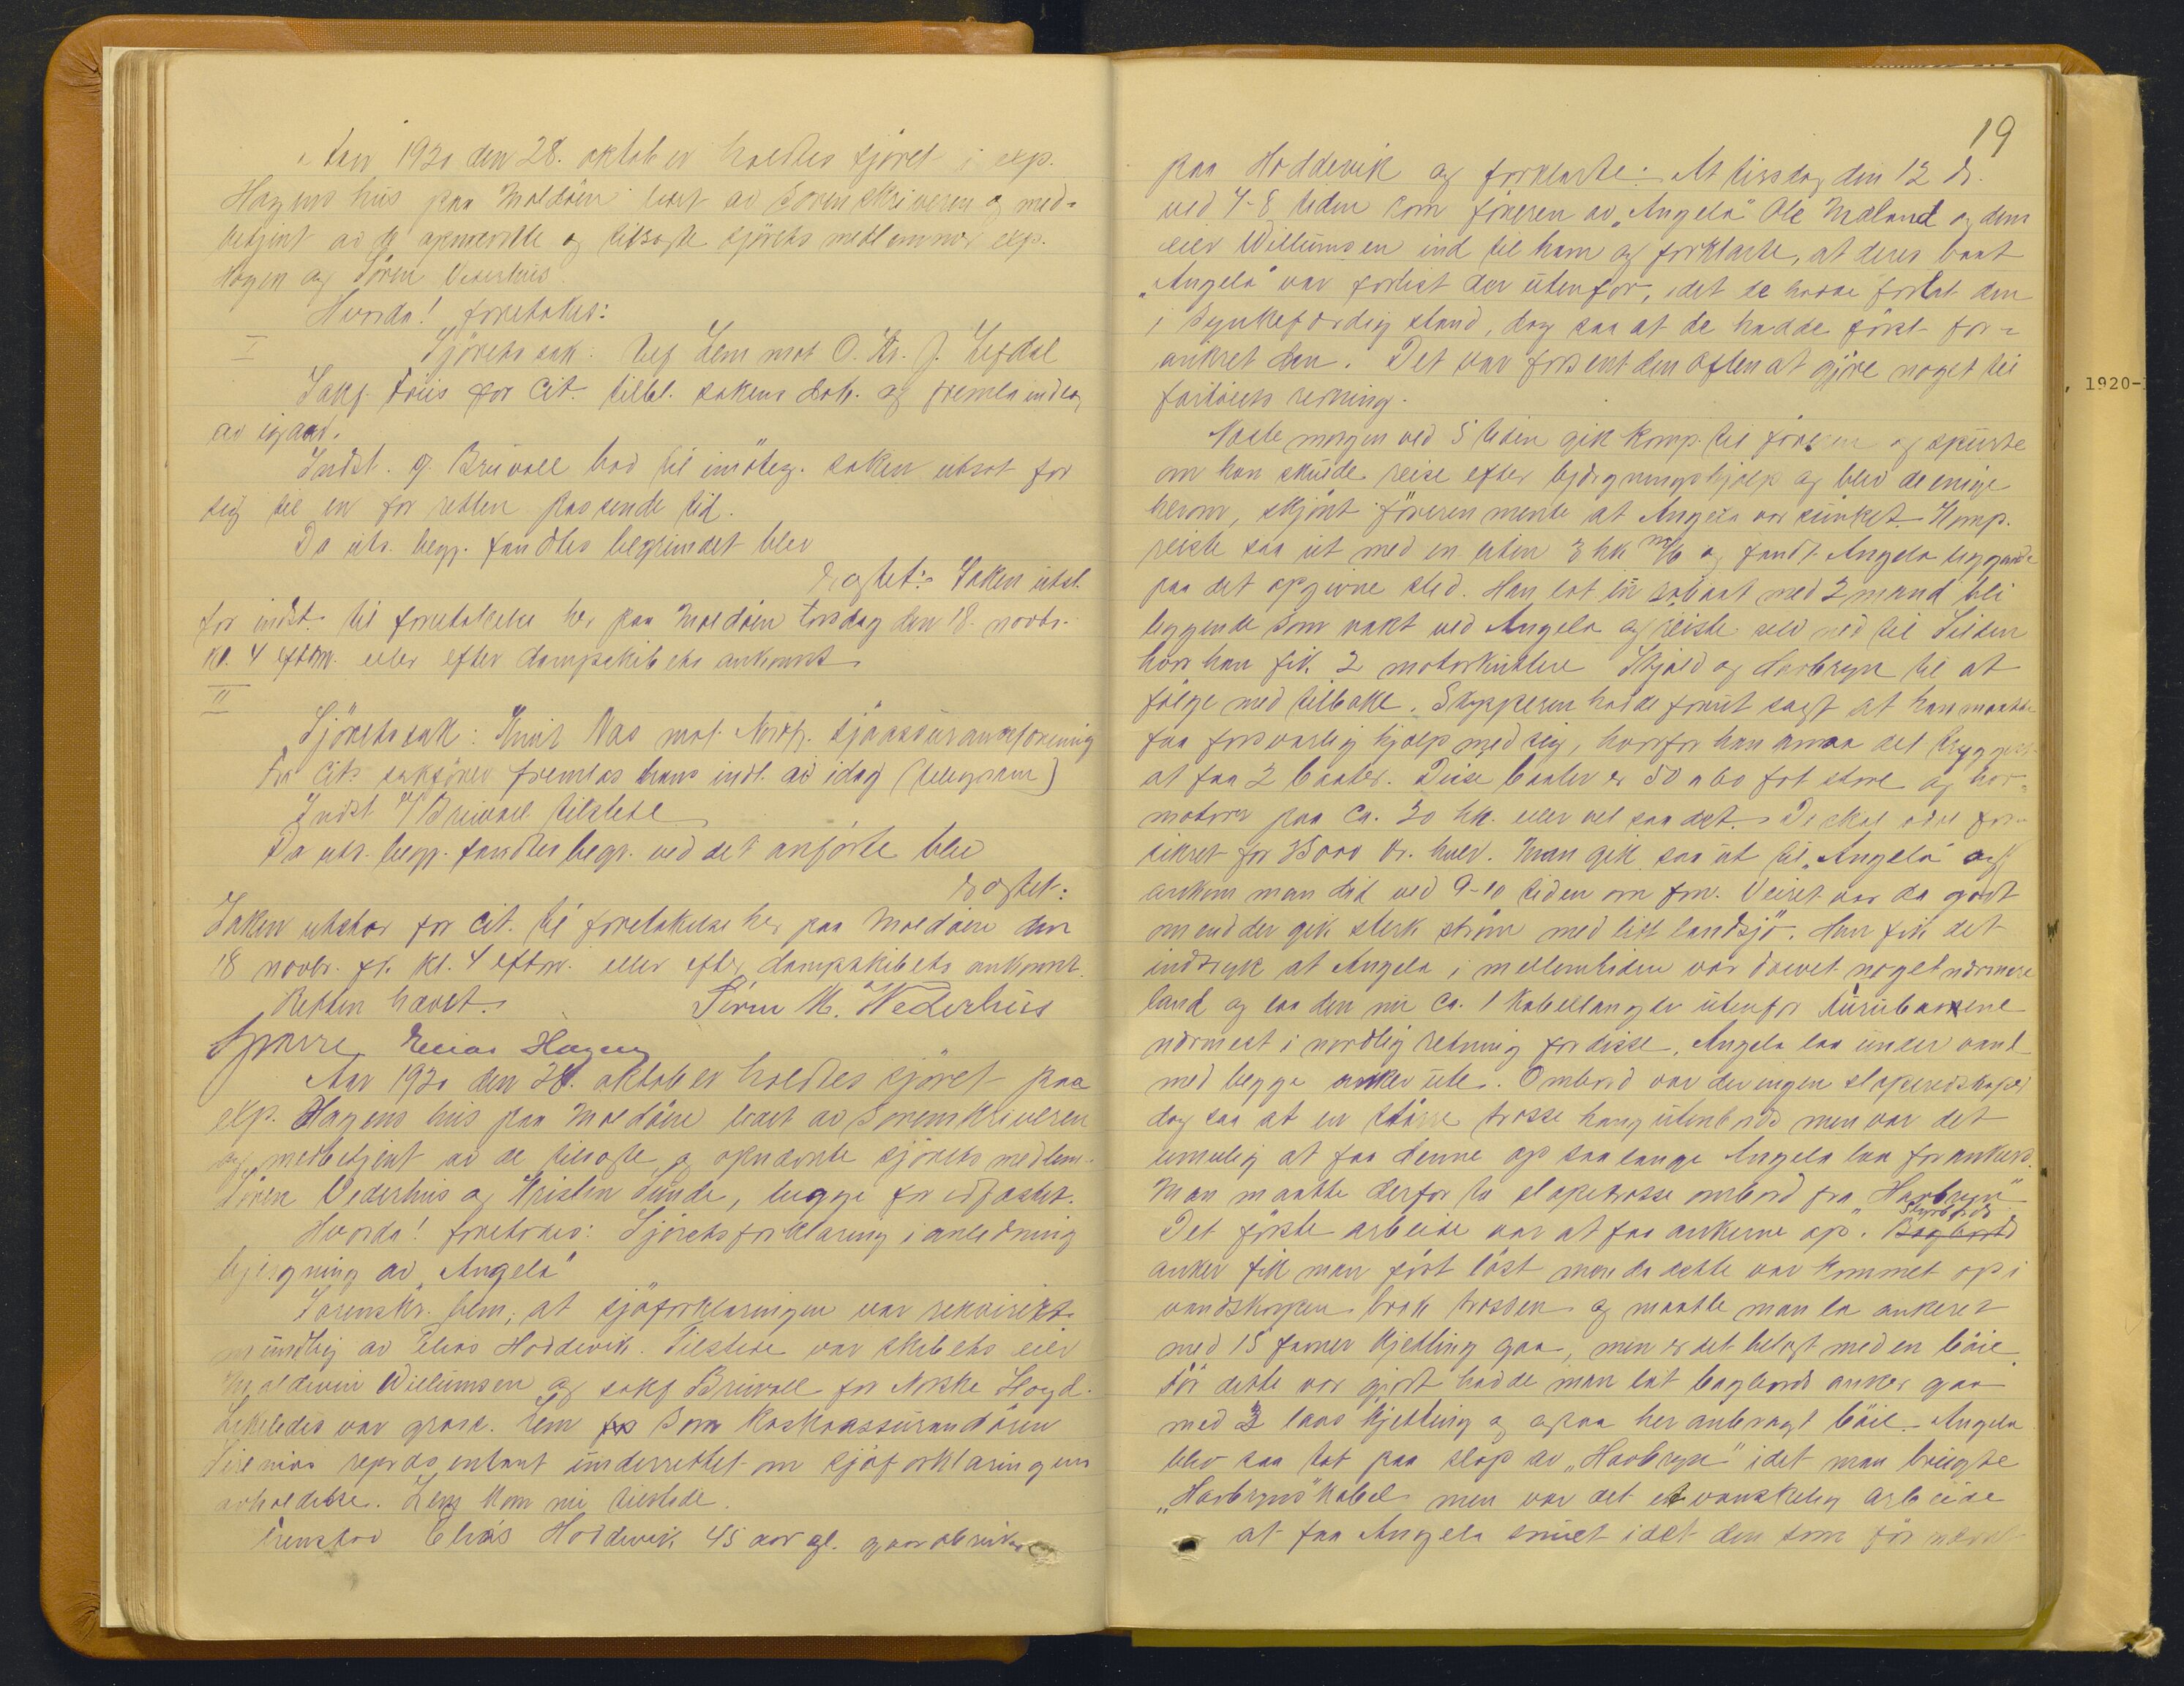 Aar 1920 den 28. oktober holdtes sjöret i exp.
Hagens hus paa Moldöen ledet av Sorenskriveren og med-
betjent av de opnævnte og tilsagte sjörets medlemmer exp.
Hagen og Sören Vederhus.
Hvorda! foretokes:
I Sjöretssak: Leif Lem mot O. Kr. J. Lefdal
Sakf. Friis for Cit. tilbl. sakens dok. og fremla indlæg
av igaar.
Indst. g. Bruvoll bad til imöteg. saken utsat for
sig til en for retten passende tid.
Da uts. begj. fandtes begrundet blev
Eragtet: Saken utst.
for indst. til foretakelse her paa Moldöen torsdag den 18. novbr.
kl. 4 efterm. eller efter dampskibets ankomst
II
Sjöretssak: Knut Nas mot Nordf. sjöassuranceforening
For Cit. saksöker fremlas hans indl. av idag (telegram)
Indst. v/ Bruvoll tilstede
Da uts. begj. fandtes begr. ved det anförte blev
Eragtet:
Saken utstaar for cit. til foretakelse her paa Moldöen den
18 novbr. fk. kl. 4 efterm. eller efter dampskibets ankomst.
Retten hævet. Sören M. Wederhus
Sparre Elias Hagen
Aar 1920 den 28. oktober holdtes sjöret paa
exp. Hagens hus paa Moldöen ledet av Sorenskriveren
og medbetjent av de tilsagte og opnævnte sjörets medlem.
Sören Vederhus og Kristen Sunde, begge for edfæstet.
Hvorda! foretokes: Sjöretsforklaring i anledning
bjergning av "Angela"
Sorenskr. bem. at sjöforklaringen var rekvirert
mundtlig av Elias Hoddevik. Tilstede var skibets eier
Willumsen og sakf. Bruvoll for Norske Lloyd.
Likeledes var Lem som Kaskoassurandören
repræsentant underrettet om sjöforklaringens
avholdelse. Lem kom nu tilstede.
fremstod Elias Hoddevik 45 aar gl. gaardbruker
19
paa Hoddevik og forklarte: At tirsdag den 12 ds.
ved 7-8 tiden kom föreren av "Angela" Ole Mæland og dens
eier Willumsen ind til ham og forklarte, at deres baat
"Angela" var forlist der utenfor, idet de hadde forlat den
i synkefærdig stand, dog saa at de hadde först for-
ankret den. Det var forsent den aften at gjöre noget til
fartöiets redning.
Næste morgen ved 5 tiden gik komp. til föreren og spurte
om han skulde reise efter bjergningshjælp og blev de enige
herom, skjönt föreren mente at Angela var sunket. Komp.
reiste saa ut med en liten 3 hk m/b og fandt Angela liggende
paa det opgivne sted. Han lot en robaat med 2 mand bli
liggende som vakt ved Angela og reiste selv ned til Silden
hvor han fik 2 motorkuttere Skjold og Havbryn til at
fölge med tilbake. Skipperen hadde forut sagt at han maatte
faa forsvarlig hjælp med sig, hvorfor han ansaa det tryggest
at faa 2 baater. Disse baater er 50 a 60 fot store og har
motorer paa ca. 30 hk. eller vel saa det. De skal være for-
sikret for 35000 kr. hver. Man gik saa ut til "Angela" og
ankom man dit ved 9-10 tiden om fm. Veiret var da godt
men der gik sterk ström med litt landsjö. Han fik det
indtryk at Angela i mellemtiden var drevet noget nærmere
land og laa den nu ca. 1 kabellængde utenfor
nærmest i nordlig retning for disse. Angela laa under vand
med begge anker ute. Ombord var der ingen slæperedskaper
dog saa at en större trosse hang utenbords men var det
umulig at faa denne op saalænge Angela laa forankret.
Man maatte derfor ta slæpetrosse ombord fra "Havbryn"
Det förste arbeide var at faa ankerne op. Bagbords Styrbords
anker fik man först löst men da dette var kommet op i
vandskorpen brak trossen og maatte man la ankeret
med 15 favner kjetting gaa, men er det belagt med en böie.
För dette var gjort hadde man lat bagbords anker gaa
med 3 laas kjetting og ogsaa her anbragt böie. Angela
blev saa tat paa slæp av "Havbryn" idet man brugte
"Havbryns" kabel men var det et vanskelig arbeide
at faa Angela snuet idet den som för nævnt
, 1920-